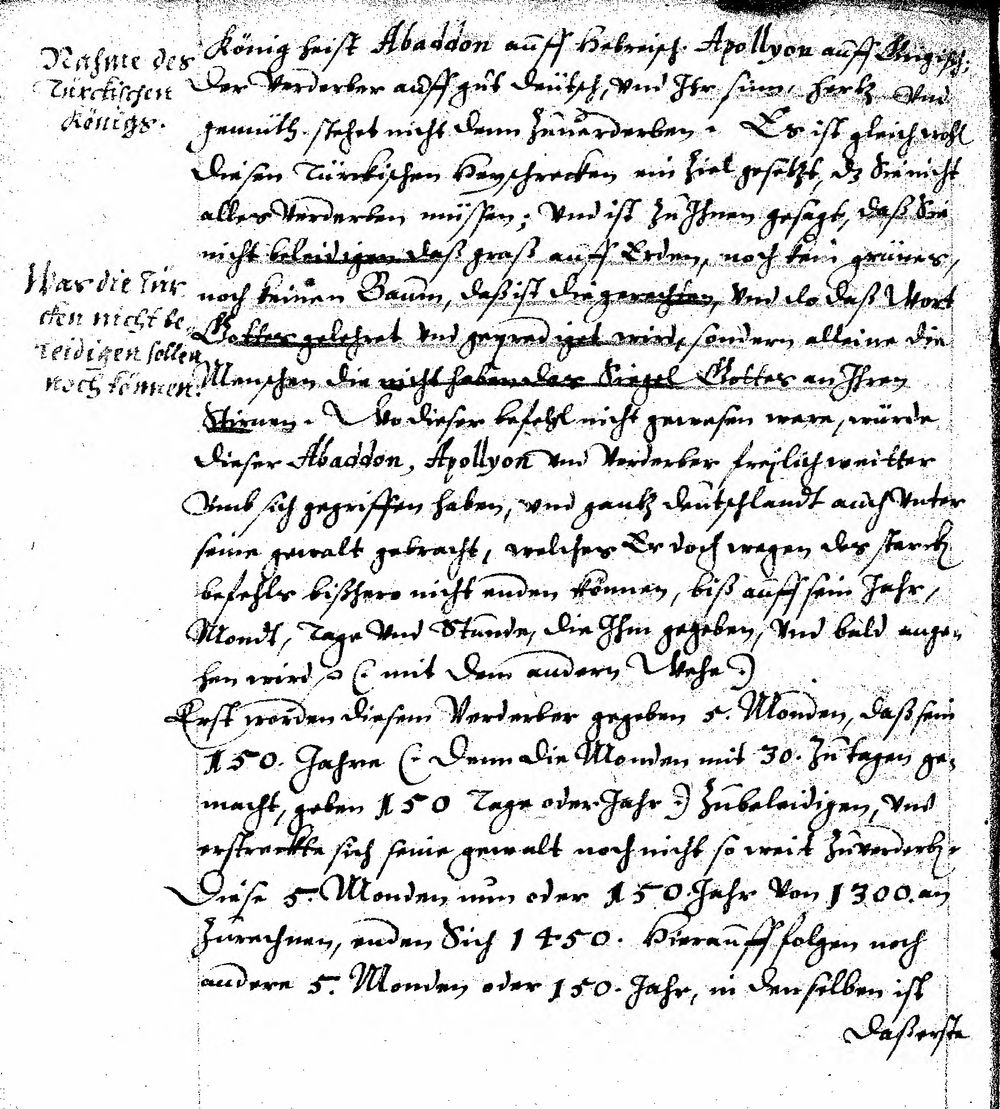 Nahme des
Türckischen
Königs.
König heist Abaddon auff Hebreisch. Apollyon auff Grigisch;
Der Verderber auff gut deutsch, Und Ihr sinn, hertz Und
gemüth stehet nicht denn Zuuerderben. Es ist gleichwohl
diesen Türckischen Heyschrecken ein Ziel gesetzt, dz Sie nicht
alles Verderben müssen; Und ist Zu Ihnen gesagt, daß Sie
nicht beleidigen daß graß auff Erden, noch kein grünes,
Was die Tür
cken nicht be-
leidigen sollen
noch können.
noch keinen Baum, daß ist die gerechten, Und do daß Wort
Gottes gelehret Und geprediget wird, sondern alleine die
Menschen die nicht haben das Siegel Gottes an Ihren
Stirnen. Wo dieser befehl nicht gewesen were, würde
dieser Abaddon, Apollyon Und Verderber freylich weitter
Umb sich gegriffen haben, Und gantz deutschlandt auch Unter
seine gewalt gebracht, welches Er doch wegen des starck
befehls bißhero nicht enden können, biß auff sein Jahr,
Mondt, Tage Und Stunde, die Ihm gegeben, Und bald ange-
hen wird (: mit dem andern Wehe :)
Erst worden diesem Verderber gegeben 5. Monden, daß sein
150. Jahre (: denn die Monden mit 30. Zu tagen ge-
macht, geben 150 Tage oder Jahr :) Zubeleidigen, Und
erstreckte sich seine gewalt noch nicht so weit Zuverderb.
Diese 5. Monden nun oder 150. Jahr Von 1300. an
Zurechnen, enden Sich 1450. Hierauff folgen noch
andere 5. Monden oder 150. Jahr, in denselben ist
daß erste